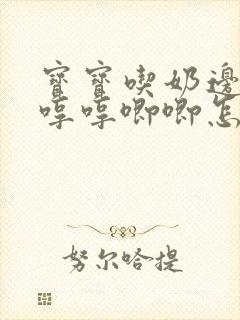 寶寶喫奶邊
哼哼唧唧怎
努尔哈提